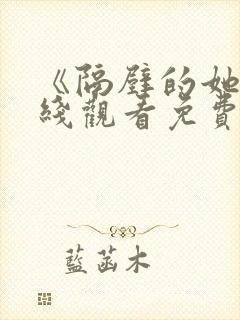 《隔壁的她
綫觀看免費
藍菡木